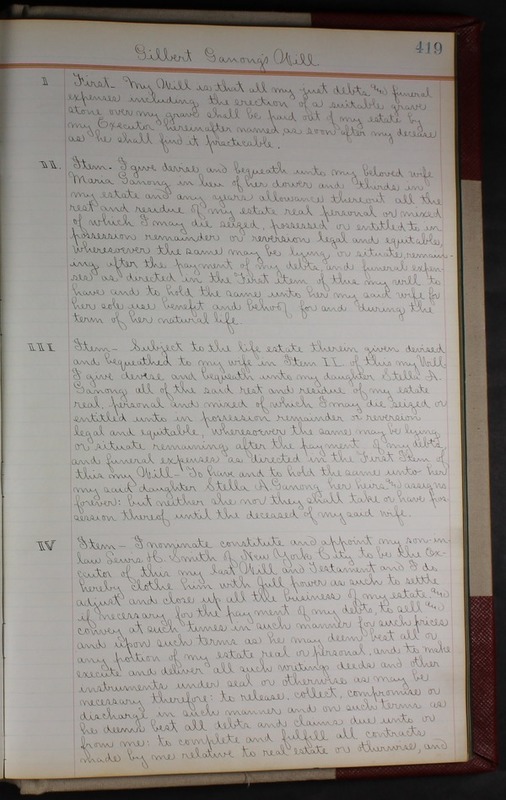 419
Gilbert Ganong's Will
I First - My Will is that all my just debts & funeral
expenses including the erection of a suitable grave
stone over my grave shall be paid out of my estate by
my Executor hereinafter named as soon after my decease
as he shall find it practicable.
II. Item - I give devise and bequeath unto my beloved wife
Maria Ganong in lieu of her dower and thirds in
my estate and any years allowance thereout all the
rest and residue of my estate real personal or mixed
of which I may die seized, possessed or entitled to in
possession remainder or reversions legal and equitable,
wheresoever the same may be lying or situate remain-
ing after the payment of my debts, and funeral expen-
ses as directed in the First item of this my will to
have and to hold the same unto her my said wife for
her sole use benefit and behoof for and during the
term of her natural life.
III Item - Subject to the life estate therein given devised
and bequeathed to my wife in Item II. of this my Will
I give devise and bequeath unto my daughter Stella A.
Ganong all of the said rest and residue of my estate
real, personal and mixed of which I may die seized or
entitled unto in possession remainder or reversion
legal and equitable, wheresoever the same may be lying
or situate remaining, after the payment of my debts
and funeral expenses as directed in the First Item of
this my Will - To have and to hold the same unto her
my said daughter Stella A Ganong her heirs & assigns
forever: but neither she nor they shall take or have pos-
session thereof until the deceased of my said wife.
IV Item - I nominate constitute and appoint my son-in-
law H. Smith of New York City to be the Ex-
cutor of this my last Will and Testament and I do
hereby clothe him with full power as such to settle
adjust and close up all the business of my estate &
if necessary for the payment of my debts, to sell &
convey at such times in such manner for such prices
and upon such terms as he may deem best all or
any portion of my estate real or personal, and to make
execute and deliver all such writings deeds and other
instruments under seal or otherwise as may be
necessary therefore: to release, collect, compromise or
discharge in such manner and on such terms as
he deems best all debts and claims due unto or
from me: to complete and fulfill all contracts
made by me relative to real estate or otherwise, and